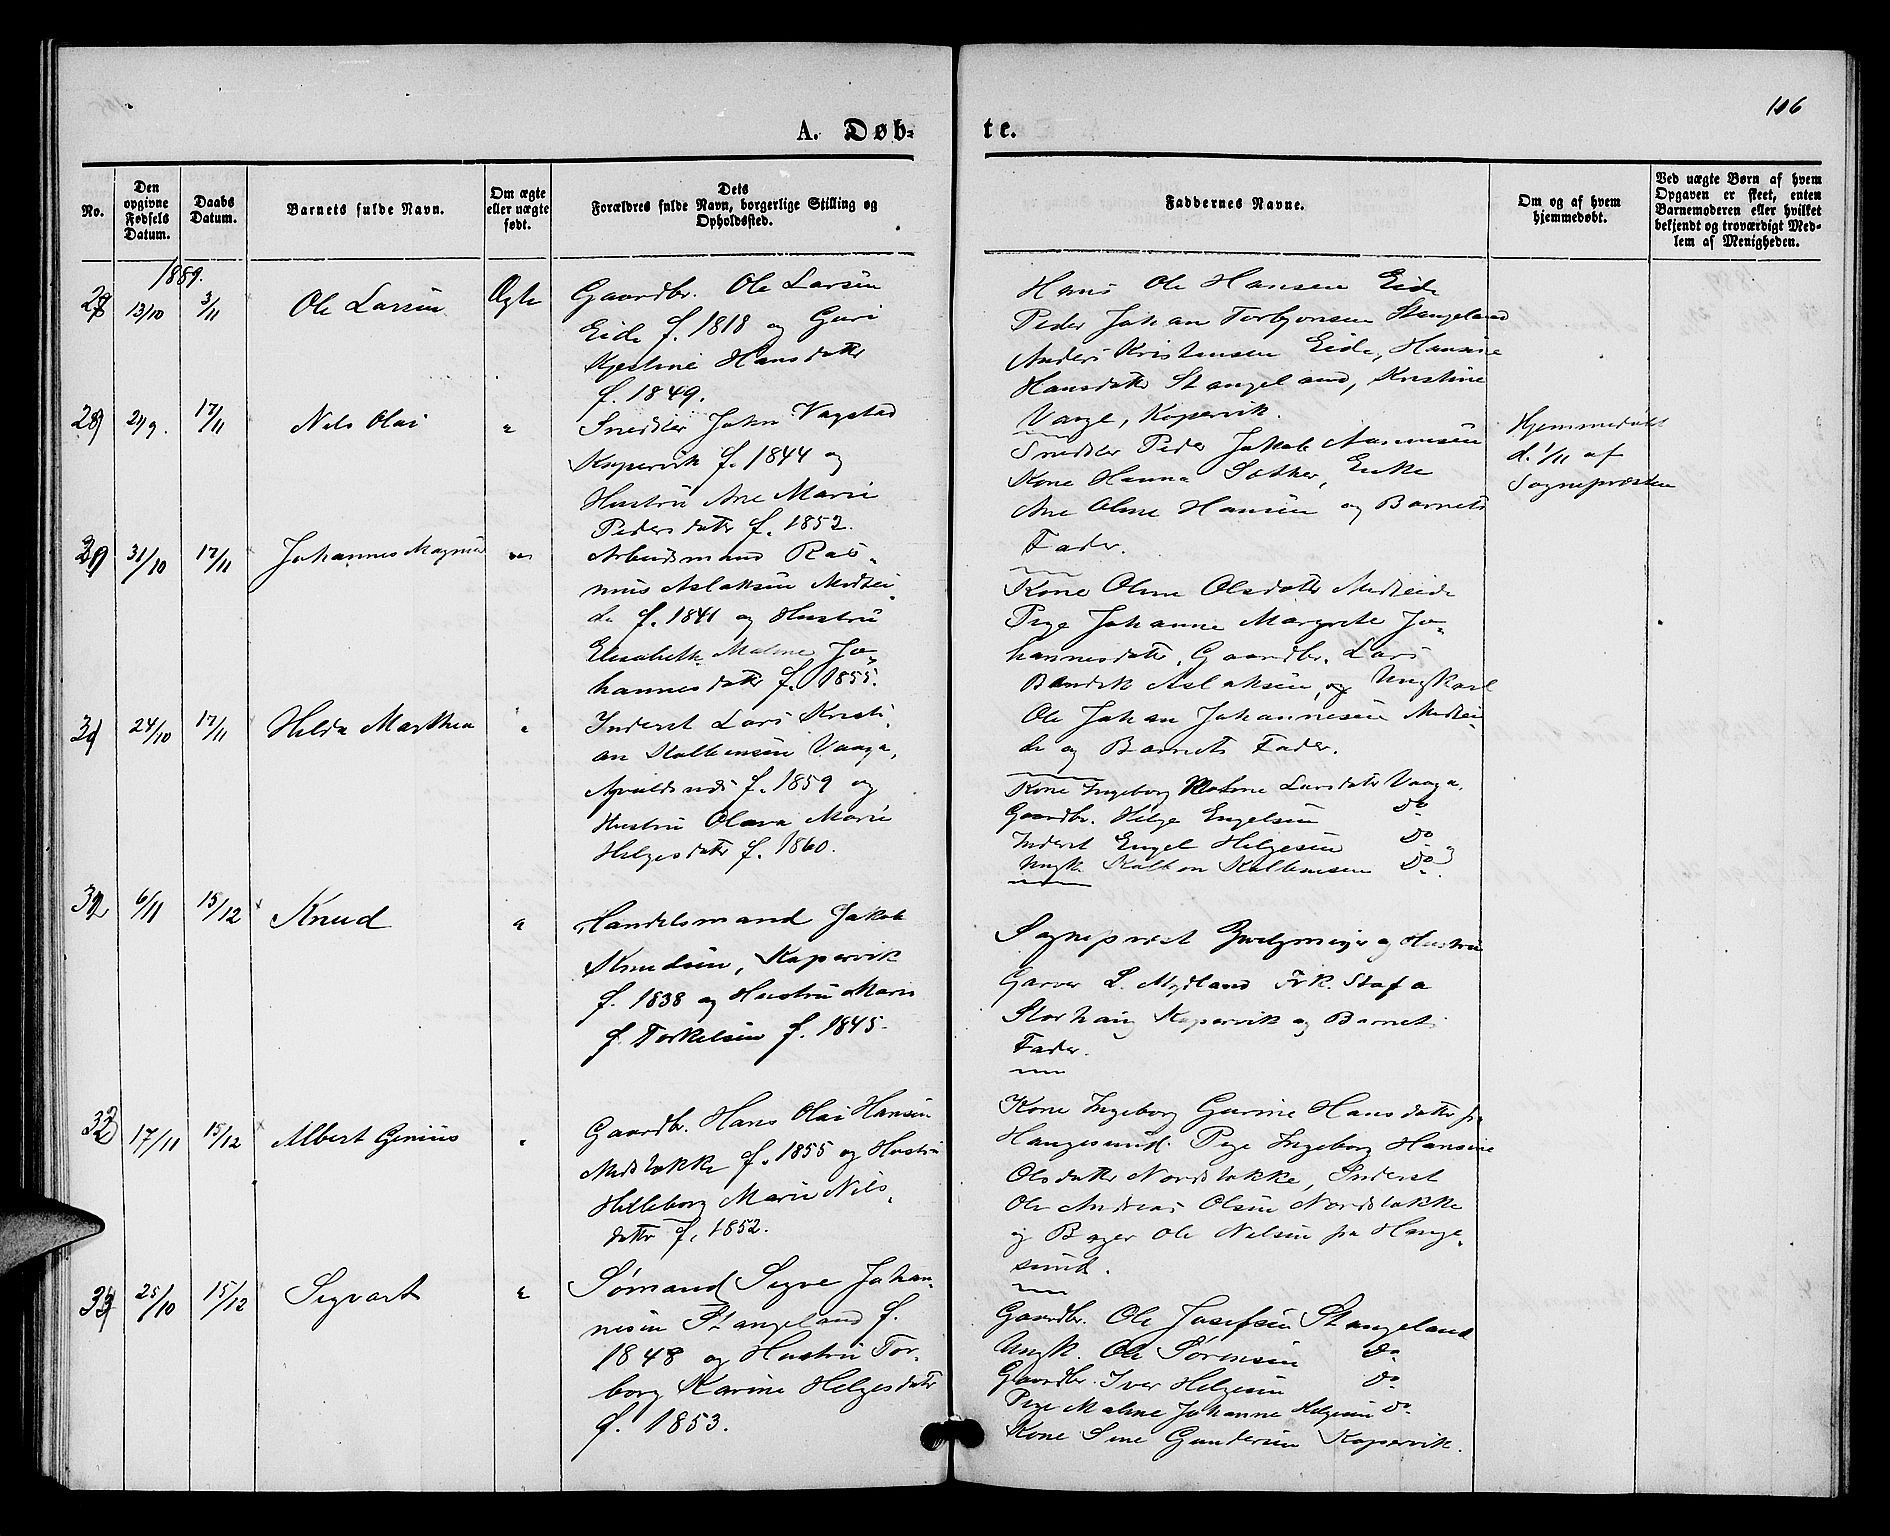 106
A. Døb-
te.
No.
Den
opgivne
Fødsels
Datum.
Daabs
Datum.
Barnets fulde Navn.
Om ægte
eller uægte
født.
Dets
Forældres fulde Navn, borgerlige Stilling og
Opholdssted.
Faddernes Navne.
Om og af hvem
hjemmedøbt.
Ved uægte Børn af hvem
Opgaven er skeet, enten
Barnemoderen eller hvilket
bekjendt og troværdigt Med-
lem af Menigheden.
1889.
28 13/10 3/11 Ole Larsen Ægte
Gaardbr. Ole Larsen
Eide f. 1818 og Guri
Kjestine Hansdatter
f. 1849.
Hans Ole Hansen Eide
Peder Johan Torbjønsen Stangeland
Anders Kristensen Eide, Hansine
Hansdatter Stangeland, Kristine
Vaage, Kopervik.
29 29/9. 17/11 Nils Olai "
Snedker John Vagstad
Kopervik f. 1844 og
Hustru Ane Marie
Pedersdatter f. 1852.
Snedker Peder Jakob Rasmussen
Kone Hanna Sather, Enke
Ane Oline Hansen og Barnets
Fader.
Hjemmedøbt
d. 1/11 af
Sognepræsten
30 31/10 17/11 Johannes Magnus "
Arbeidsmand Ras-
mus Aslaksen Midtei-
de f. 1841 og Hustru
Elisabeth Maline Jo-
hannesdatter f. 1855.
Kone Oline Olsdatter Midteide
Pige Johanne Margrete Jo-
hannesdatter, Gaardbr. Lars
Bendik Aslaksen, og Ungkarl
Ole Johan Johannesen Midtei-
de og Barnets Fader.
31 24/10 17/11 Helda Marthea "
Inderst Lars Kristi-
an Kolbensen Vaage,
Agvaldsnes f. 1859 og
Hustru Olava Marie
Helgesdatter f. 1860.
Kone Ingeborg Maline Larsdatter Vaage,
Gaardbr. Helge Engelsen Do
Inderst Engel Helgesen Do
Ungk. Kolben Kolbensen Do.
32 6/11 15/12 Knud "
Handelsmand Jakob
Knudsen, Kopervik
f. 1838 og Hustru Maria
f Torkelsen f. 1845.
Sognepræst og Hustru
Garver L. Mydland Frk. Stafa
Storhaug Kopervik og Barnets
Fader.
33 17/11 15/12 Albert Genius "
Gaardbr. Hans Olai Hansen
Midtstokke f. 1855 og Hustru
Helleborg Marie Nils-
datter f. 1852.
Kone Ingeborg Gurine Hansdatter fra
Haugesund. Pige Ingeborg Hansine
Olsdatter Nordstokke, Inderst
Ole Andreas Olsen Nordstokke
og Bager Ole Nilsen fra Hauge-
sund.
34 25/10 15/12 Sigvart "
Sømand Signe Johan-
nesen Stangeland f.
1848 og Hustru Tor-
borg Karine Helgesdatter
f. 1853.
Gaardbr. Ole Josefsen Stangeland
Ungk. Ole Sørensen Do.
Gaardbr. Iver Helgesen Do.
Pige Maline Johanne Helgesen Do.
Kone Sine Gundersen Kopervik.